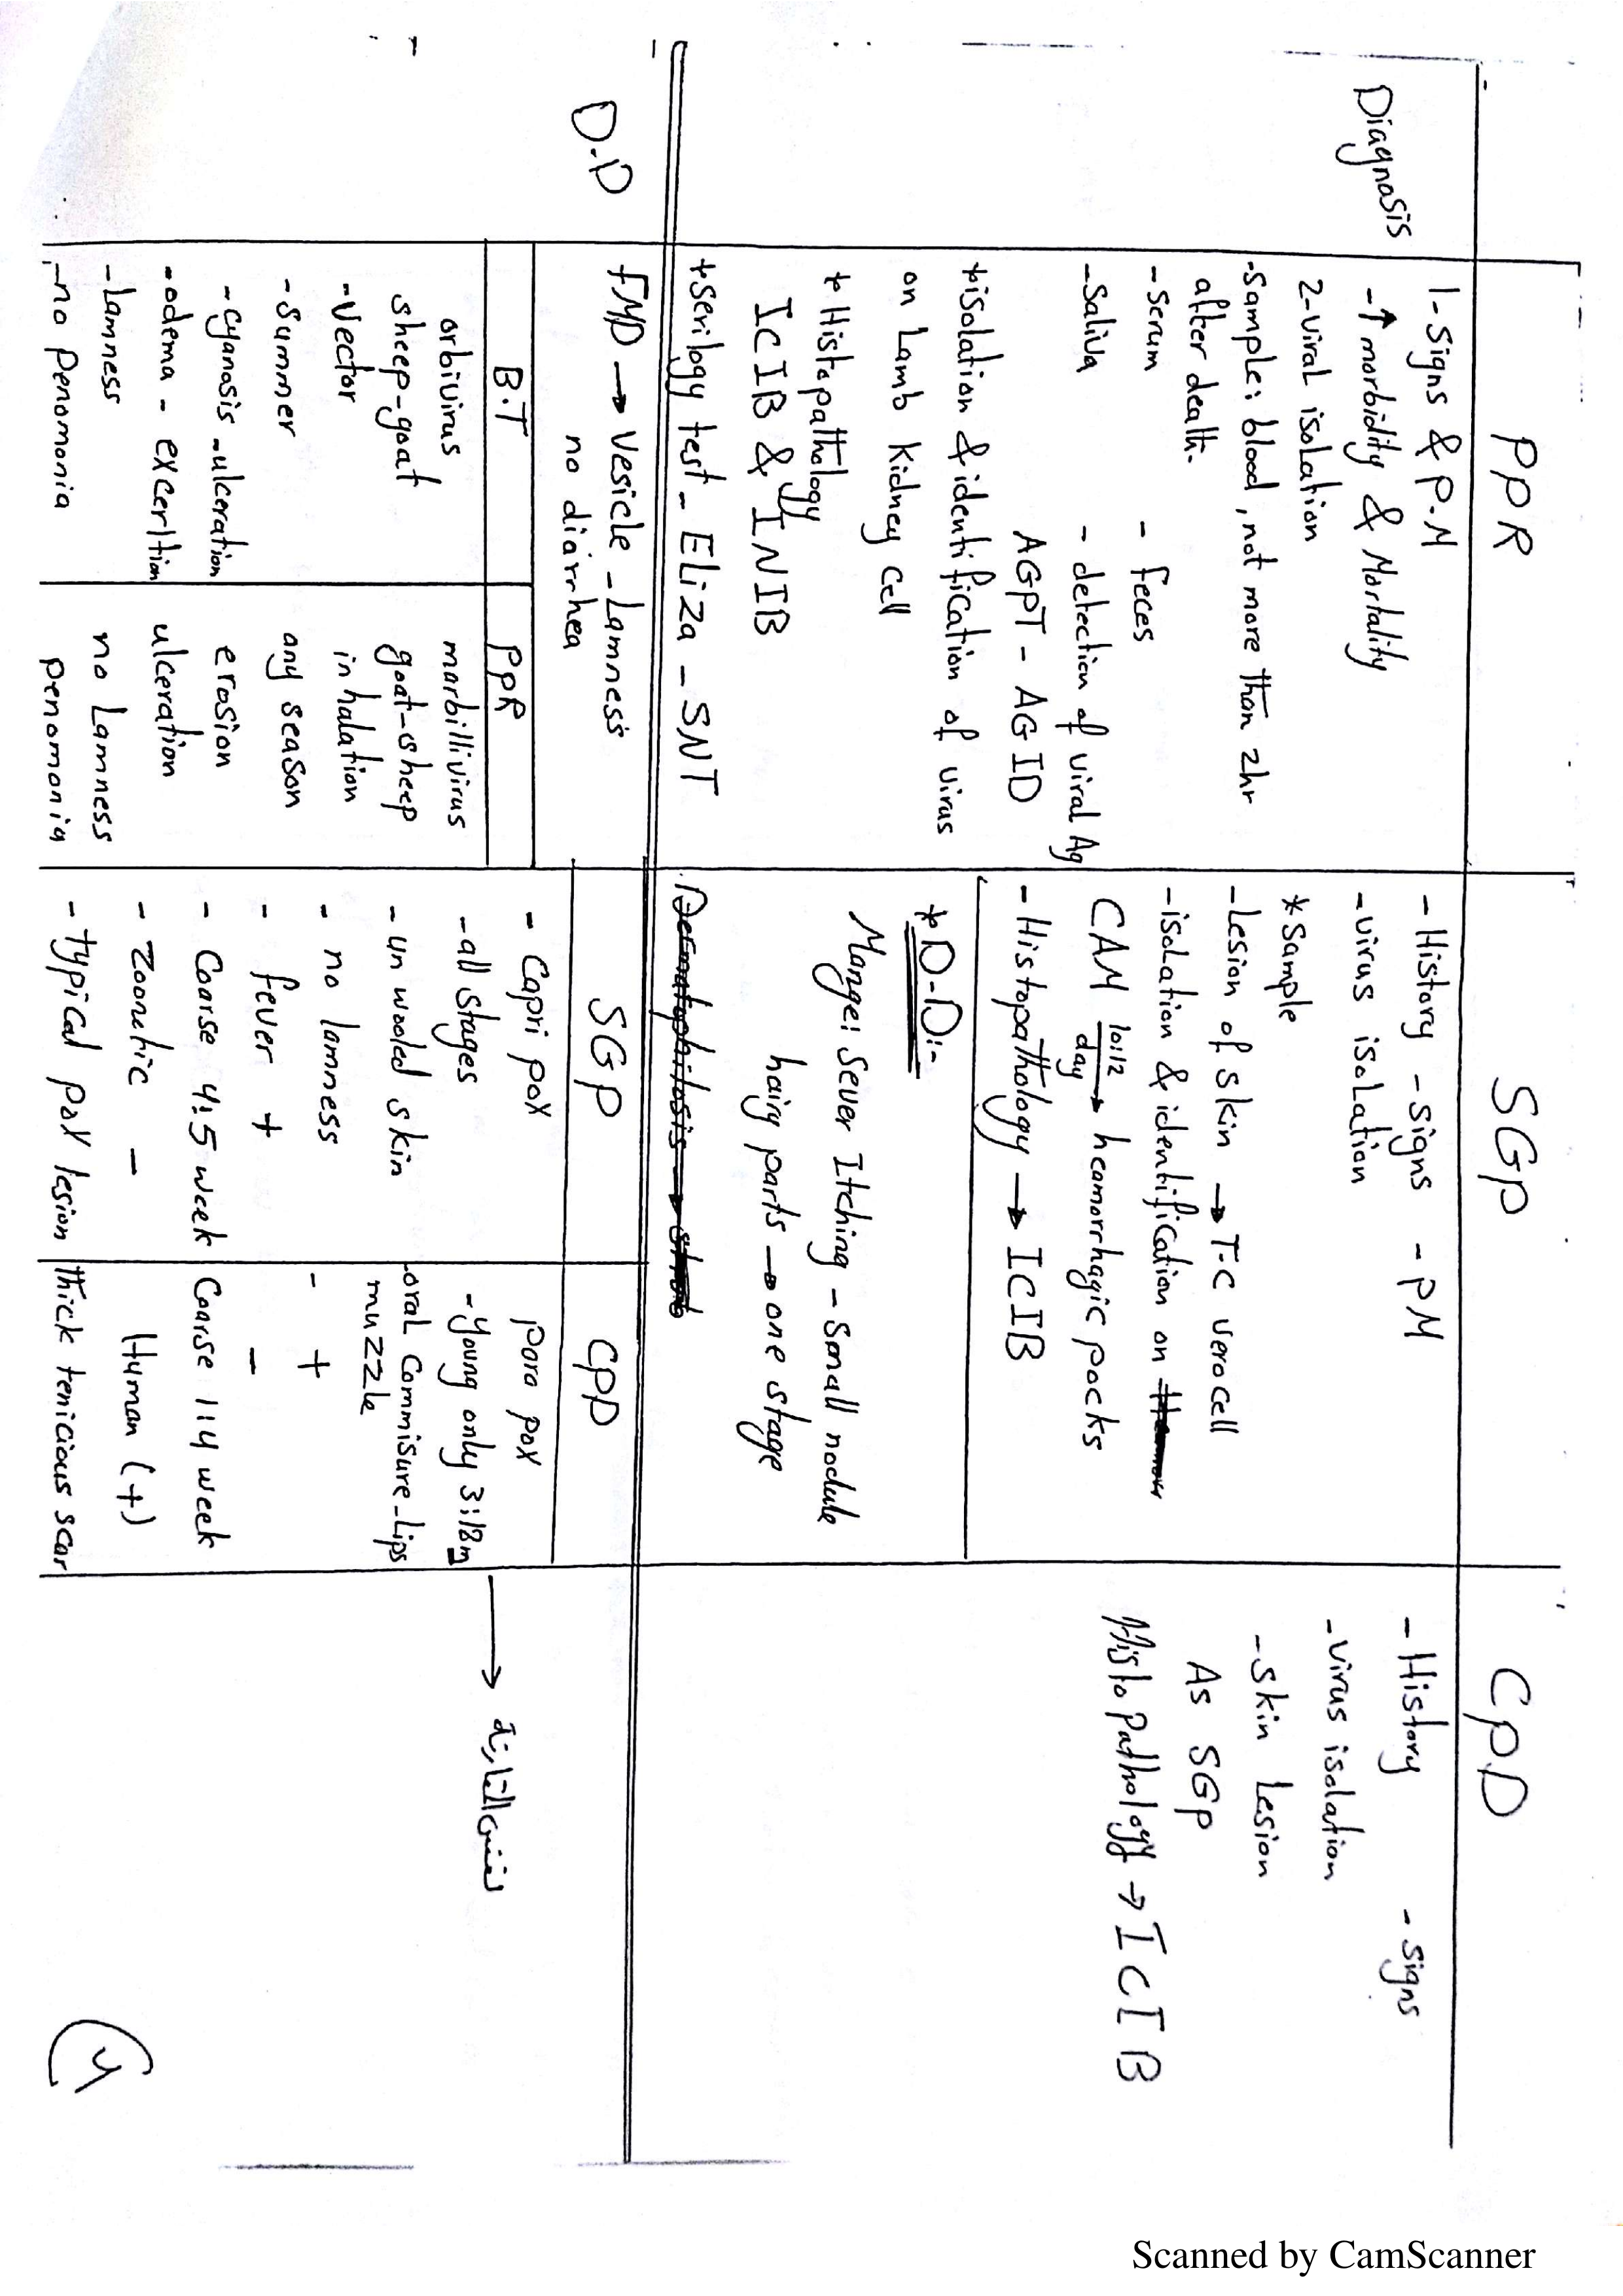 PPR SGP CPD
Diagnosis
1-Signs & P.M
-↑ morbidity & Mortality
2-viral isolation
-Sample: blood, not more than 2hr
after death.
-Serum - feces
-Saliva - detection of viral Ag
AGPT - AGID
*isolation & identification of virus
on Lamb Kidney Cell
* Histopathology
ICIB & INIB
*Serilogy test - Eliza - SNT
- History - signs - PM
-virus isolation
* Sample
-Lesion of skin → T.C verocell
-isolation & identification on
CAM 10:12 day → heamorrhagic pocks
- Histopathology → ICIB
* D.D:-
Mange: Sever Itching - Small nodule
hairy parts → one stage
Dermatophilosis →
- History - signs
-virus isolation
-skin Lesion
As SGP
Histopathology → ICIB
D.D
FMD → Vesicle - Lamness
no diarrhea
B.T PPR
orbivirus marbillivirus
sheep-goat goat-sheep
-Vector inhalation
-Summer any season
-cyanosis -ulceration erosion
-odema - excerltion ulceration
-Lamness no Lamness
-no penomonia penomonia
SGP CPD
- Capri pox para pox
-all stages -young only 3:12m
-un wooled skin -oral Commisure-Lips
muzzle
- no lamness +
- fever + -
- Coarse 4:5 week Coarse 1:4 week
- Zoonotic - Human (+)
- typical pox lesion thick tenicious scar
→
4
Scanned by CamScanner